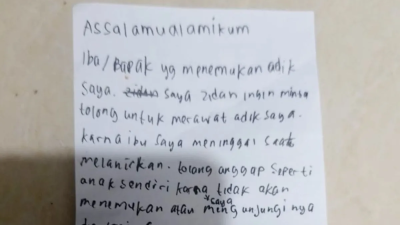 Assalamualamikum
Iba/Bapak yg menemukan adik
saya. saya zidan ingin minta
tolong untuk merawat adik saya.
karna ibu saya meninggal saat
melanirkan. tolong anggap seperti
anak sendiri karna tidak akan
menemukan atau saya mengunjungi nya